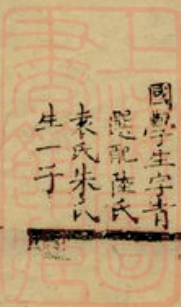 國學生字青
選配陸氏
袁氏朱氏
生一子